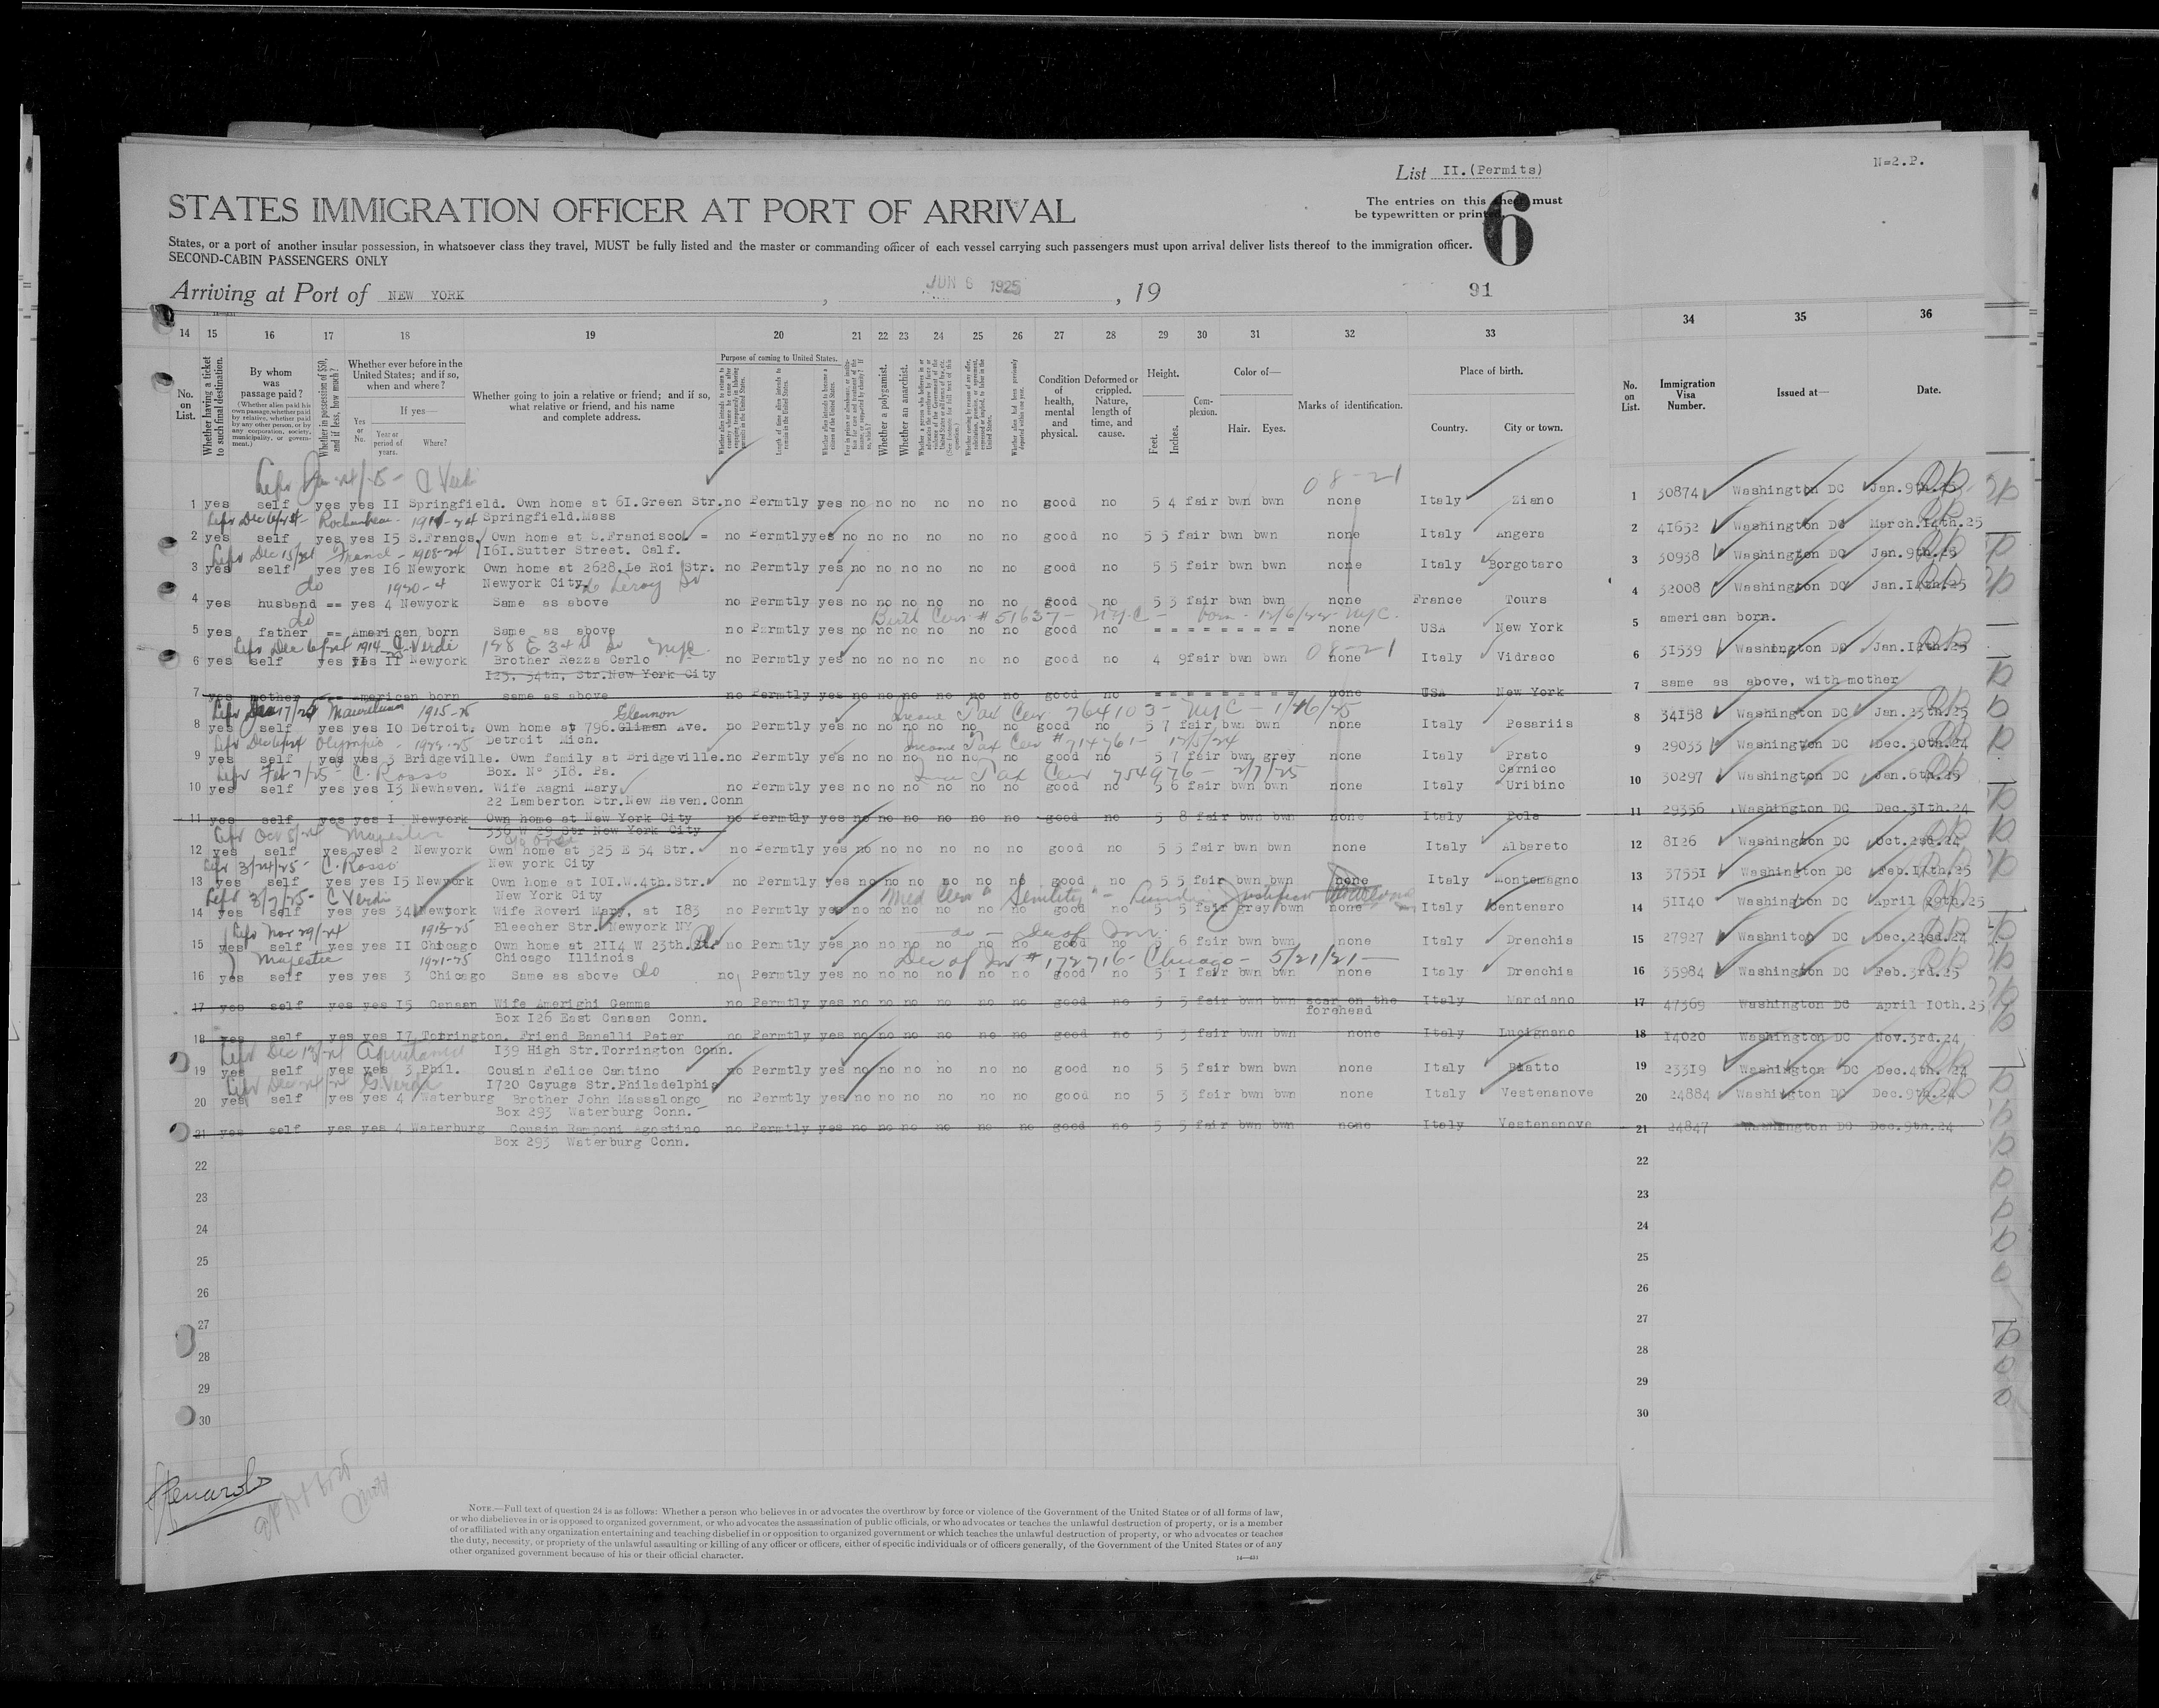 N=2.P.
List II.(Permits)
STATES IMMIGRATION OFFICER AT PORT OF ARRIVAL
The entries on this sheet must
be typewritten or printed.
6
States, or a port of another insular possession, in whatsoever class they travel, MUST be fully listed and the master or commanding officer of each vessel carrying such passengers must upon arrival deliver lists thereof to the immigration officer.
SECOND-CABIN PASSENGERS ONLY
Arriving at Port of NEW YORK , JUN 6 1925 , 19 91
14 15 16 17 18 19 20 21 22 23 24 25 26 27 28 29 30 31 32 33 34 35 36
No. on List.
Whether having a ticket to such final destination.
By whom was passage paid?
(Whether alien paid his own passage, whether paid by relative, whether paid by any other person, or by any corporation, society, municipality, or government.)
Whether in possession of $50, and if less, how much?
Whether ever before in the United States; and if so, when and where?
Yes or No.
If yes—
Year or period of years.
Where?
Whether going to join a relative or friend; and if so, what relative or friend, and his name and complete address.
Purpose of coming to United States.
Whether a polygamist.
Whether an anarchist.
Condition of health, mental and physical.
Deformed or crippled. Nature, length of time, and cause.
Height.
Feet.
Inches.
Complexion.
Color of—
Hair. Eyes.
Marks of identification.
Place of birth.
Country. City or town.
No. on List.
Immigration Visa Number.
Issued at—
Date.
C Verdi 08-21
1 yes self yes yes II Springfield. Own home at 6I.Green Str. no Permtly yes no no no no no no good no 5 4 fair bwn bwn none Italy Ziano 1 30874 Washington DC Jan.9th.25
Rochambeau Springfield.Mass
2 yes self yes yes I5 S.Franc Own home at S.Francisco = no Permtly yes no no no no no no good no 5 5 fair bwn bwn none Italy Angera 2 41652 Washington DC March.14th.25
Dec 15/24 France - 1908-24 I6I.Sutter Street. Calf.
3 yes self yes yes I6 Newyork Own home at 2628.Le Roi Str. no Permtly yes no no no no no no good no 5 5 fair bwn bwn none Italy Borgotaro 3 30938 Washington DC Jan.9th.25
do 1920-4 Newyork City
4 yes husband == yes 4 Newyork Same as above no Permtly yes no no no no no no good no 5 3 fair bwn bwn none France Tours 4 32008 Washington DC
do Birth Cer # 51637 - NYC - born - 12/6/22 - NYC.
5 yes father == American born Same as above no Permtly yes no no no no no no good no = = = = = = = = = none USA New York 5 american born.
1914 C. Verdi 128 E 34th St NYC 08-21
6 yes self yes yes II Newyork Brother Rezza Carlo no Permtly yes no no no no no no good no 4 9 fair bwn bwn none Italy Vidraco 6 31539 Washington DC
I25, 34th, Str.New York City
7 yes mother === American born same as above no Permtly yes no no no no no no good no = = = = = = = = = none USA New York 7 same as above, with mother
Mauretania 1915-25 Glennon Income Tax Cer 764103 - NYC - 1/26/25
8 yes self yes yes IO Detroit. Own home at 796.Gliman Ave. no Permtly yes no no no no no no good no 5 7 fair bwn bwn none Italy Pesariis 8 34158 Washington DC Jan.23th.25
Olympic - 1922-25 Detroit Mich. Income Tax Cer # 714761 - 12/5/24
9 yes self yes yes 3 Bridgeville. Own family at Bridgeville. no Permtly yes no no no no no no good no 5 7 fair bwn grey none Italy Prato Carnico 9 29033 Washington DC Dec.30th.24
Feb 7/25 - C. Rosso Box. N° 318. Pa. Tax Cer 754976 - 2/7/25
10 yes self yes yes I3 Newhaven. Wife Ragni Mary no Permtly yes no no no no no no good no 5 6 fair bwn bwn none Italy Uribino 10 30297 Washington DC Jan.6th.25
22 Lamberton Str.New Haven.Conn
11 yes self yes yes I Newyork Own home at New York City no Permtly yes no no no no no no good no 5 8 fair bwn bwn none Italy Pola 11 29356 Washington DC Dec.31th.24
336 W 29 Str New York City
Oct 8/24 Majestic
12 yes self yes yes 2 Newyork Own home at 325 E 54 Str. no Permtly yes no no no no no no good no 5 5 fair bwn bwn none Italy Albareto 12 8I26 Washington DC Oct.2sd.24
3/24/25 - C. Rosso New york City
13 yes self yes yes I5 Newyork Own home at IOI.W.4th.Str. no Permtly yes no no no no no no good no 5 5 fair bwn bwn none Italy Montemagno 13 3755I Washington DC Feb.17th.25
3/7/25 - C Verdi New York City Med Cer "Senility"
14 yes self yes yes 34 Newyork Wife Roveri Mary, at I83 no Permtly yes no no no no no no good no 5 5 fair grey bwn none Italy Centenaro 14 5II40 Washington DC April 29th.25
Nov 29/24 1913-25 Bleecher Str. Newyork NY
15 yes self yes yes II Chicago Own home at 2II4 W 23th.Str no Permtly yes no no no no no no good no 5 6 fair bwn bwn none Italy Drenchia 15 27927 Washniton DC Dec.22sd.24
Majestic 1921-25 Chicago Illinois Dec of Int # 172716 - Chicago - 5/21/21
16 yes self yes yes 3 Chicago Same as above do no Permtly yes no no no no no no good no 5 I fair bwn bwn none Italy Drenchia 16 35984 Washington DC Feb.3rd.25
17 yes self yes yes I5 Canaan Wife Amerighi Gemma no Permtly yes no no no no no no good no 5 5 fair bwn bwn scar on the forehead Italy Marciano 17 47369 Washington DC April IOth.25
Box I26 East Canaan Conn.
18 yes self yes yes I7 Torrington. Friend Banelli Peter no Permtly yes no no no no no no good no 5 3 fair bwn bwn none Italy Lucignano 18 I4020 Washington DC Nov.3rd.24
Aquitania I39 High Str.Torrington Conn.
19 yes self yes yes 3 Phil. Cousin Felice Cantino no Permtly yes no no no no no no good no 5 5 fair bwn bwn none Italy Piatto 19 233I9 Washington DC Dec.4th.24
G. Verdi I720 Cayuga Str.Philadelphia
20 yes self yes yes 4 Waterburg Brother John Massalongo no Permtly yes no no no no no no good no 5 3 fair bwn bwn none Italy Vestenanove 20 24884 Washington DC Dec.9th.24
Box 293 Waterburg Conn.
21 yes self yes yes 4 Waterburg Cousin Ramponi Agostino no Permtly yes no no no no no no good no 5 5 fair bwn bwn none Italy Vestenanove 21 24847 Washington DC Dec.9th.24
Box 293 Waterburg Conn.
22 22
23 23
24 24
25 25
26 26
27 27
28 28
29 29
30 30
NOTE.—Full text of question 24 is as follows: Whether a person who believes in or advocates the overthrow by force or violence of the Government of the United States or of all forms of law,
or who disbelieves in or is opposed to organized government, or who advocates the assassination of public officials, or who advocates or teaches the unlawful destruction of property, or is a member
of or affiliated with any organization entertaining and teaching disbelief in or opposition to organized government or which teaches the unlawful destruction of property, or who advocates or teaches
the duty, necessity, or propriety of the unlawful assaulting or killing of any officer or officers, either of specific individuals or of officers generally, of the Government of the United States or of any
other organized government because of his or their official character.
14—431